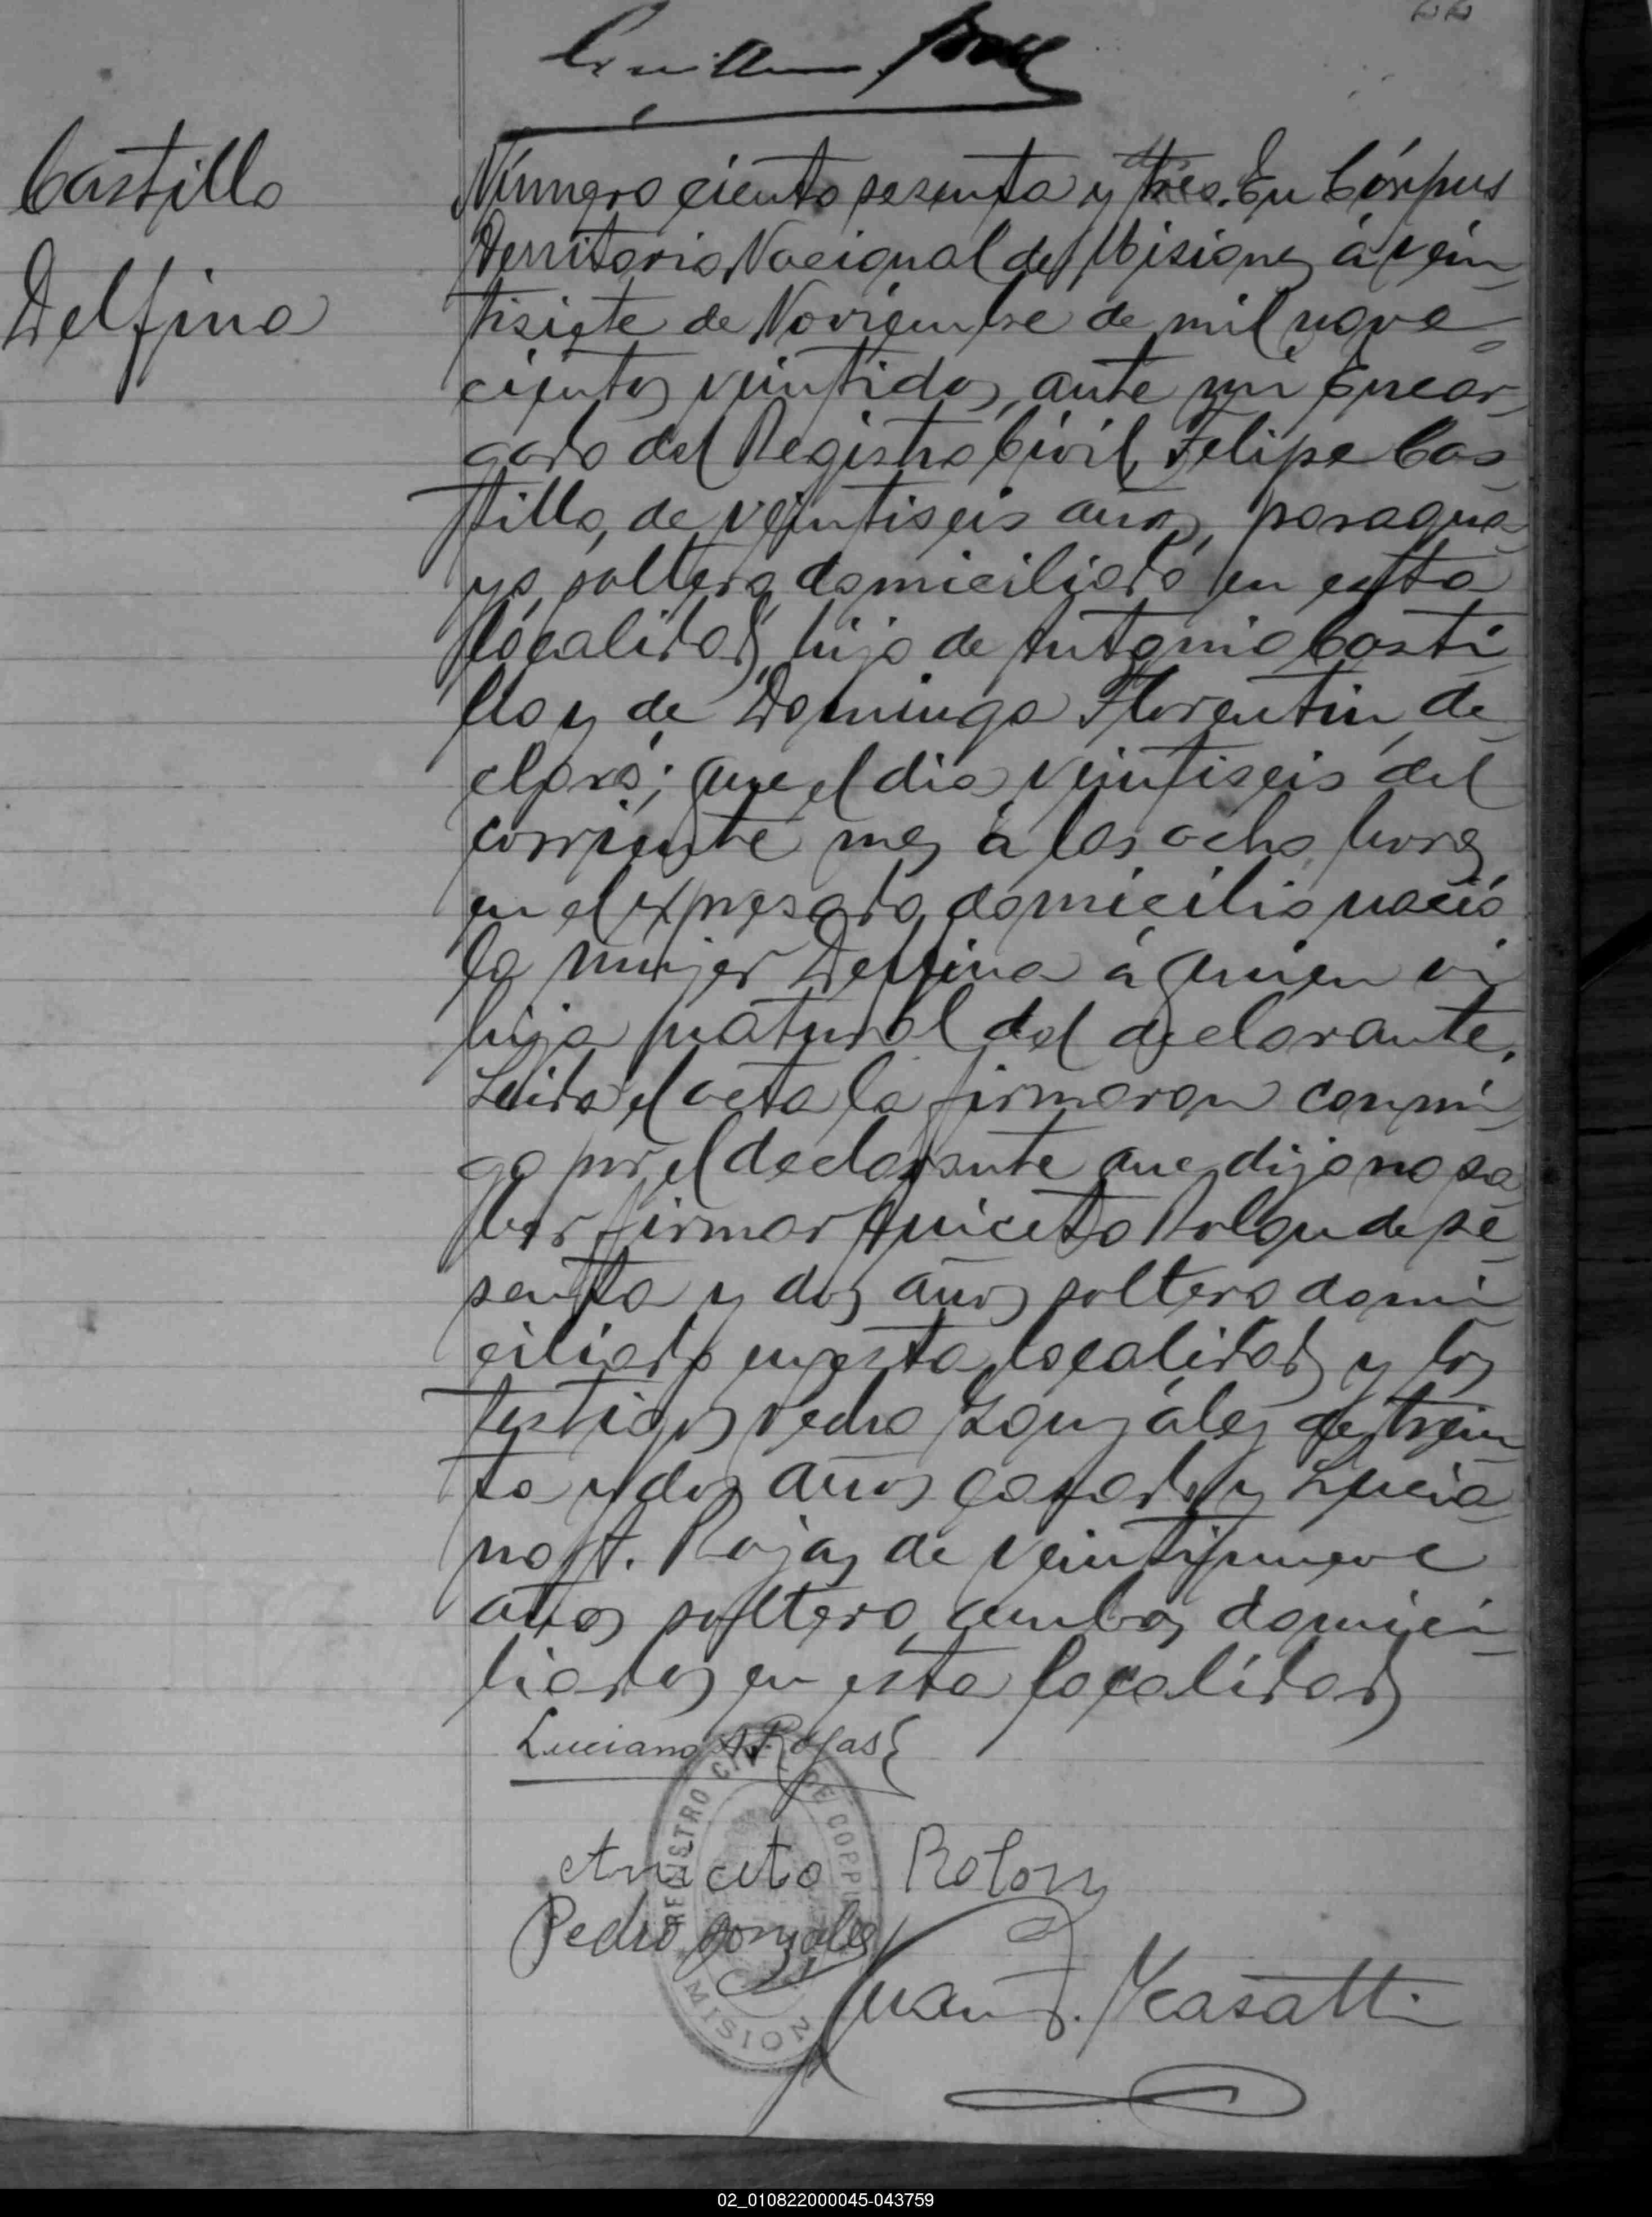 Castillo
Delfina
Número ciento sesenta y tres. En Córpus
Territorio Nacional de Misiones á vein
tisiete de Noviembre de mil nove
cientos veintidos, ante mi Encar
gado del Registro Civil, Felipe Cas
tillo, de veintiseis años, paragua
yo, soltero, domiciliado en esta
localidad, hijo de Antonio Casti
llo y de Dominga Florentin, de
claró; que el dia veintiseis del
corriente mes á las ocho horas
en el expresado domicilio nació
la mujer Delfina á quien vi
hija natural del declarante.
Leida el acta la firmaron conmi
go por el declarante que dijo no sa
ber firmar Aniceto Rolon de se
senta y dos años soltero domi
ciliado en esta localidad y los
testigos Pedro Gonzáles de trein
ta y dos años casado y Lucia
no A. Rojas de veintinueve
años soltero, ambos domici
liados en esta localidad
Luciano A. Rojas
Aniceto Rolon
Pedro Gonzales
Juan
REGISTRO CIVIL DE CORPUS
MISIONES
02_010822000045-043759